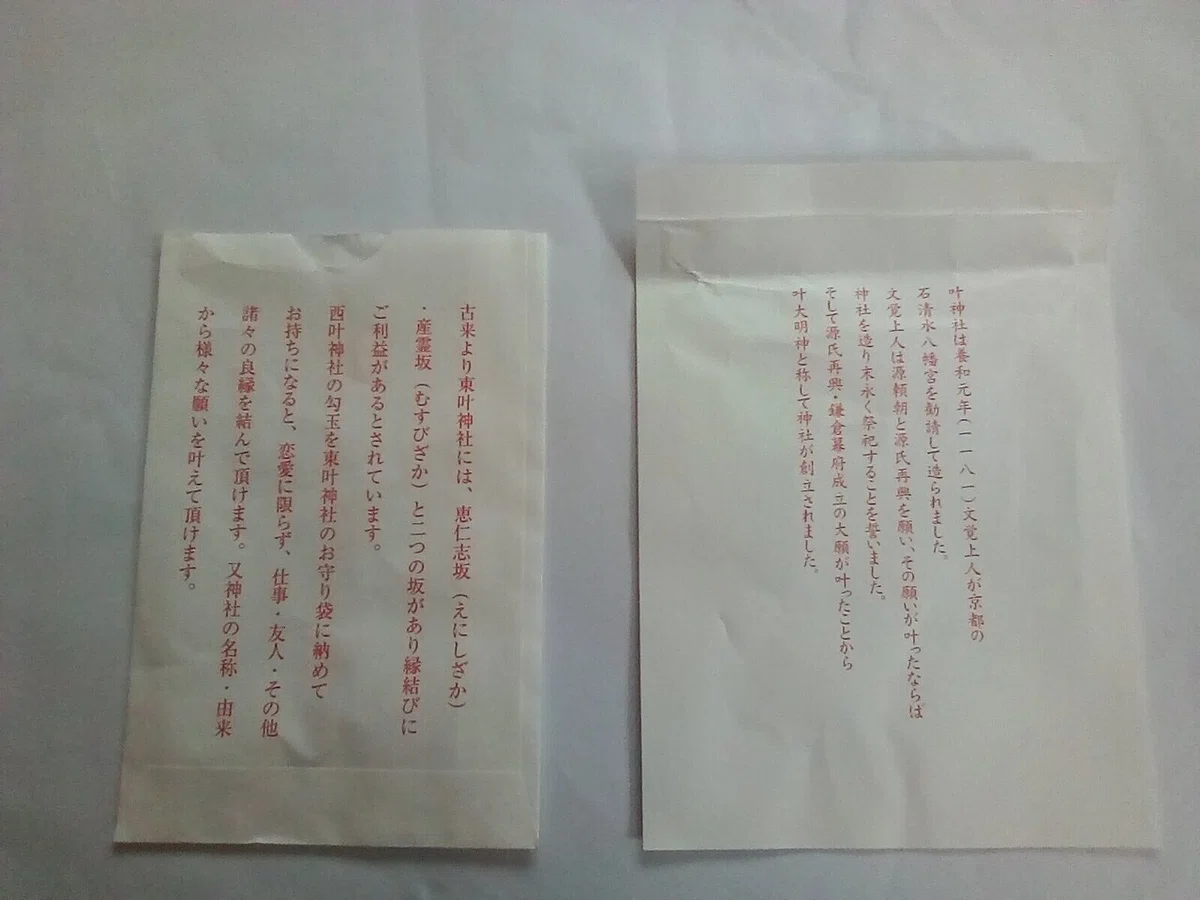 古来より東叶神社には、恵仁志坂（えにしざか）
・産霊坂（むすびざか）と二つの坂があり縁結びに
ご利益があるとされています。
西叶神社の勾玉を東叶神社のお守り袋に納めて
お持ちになると、恋愛に限らず、仕事・友人・その他
諸々の良縁を結んで頂けます。又神社の名称・由来
から様々な願いを叶えて頂けます。
叶神社は養和元年（一一八一）文覚上人が京都の
石清水八幡宮を勧請して造られました。
文覚上人は源頼朝と源氏再興を願い、その願いが叶ったならば
神社を造り末永く祭祀することを誓いました。
そして源氏再興・鎌倉幕府成立の大願が叶ったことから
叶大明神と称して神社が創立されました。